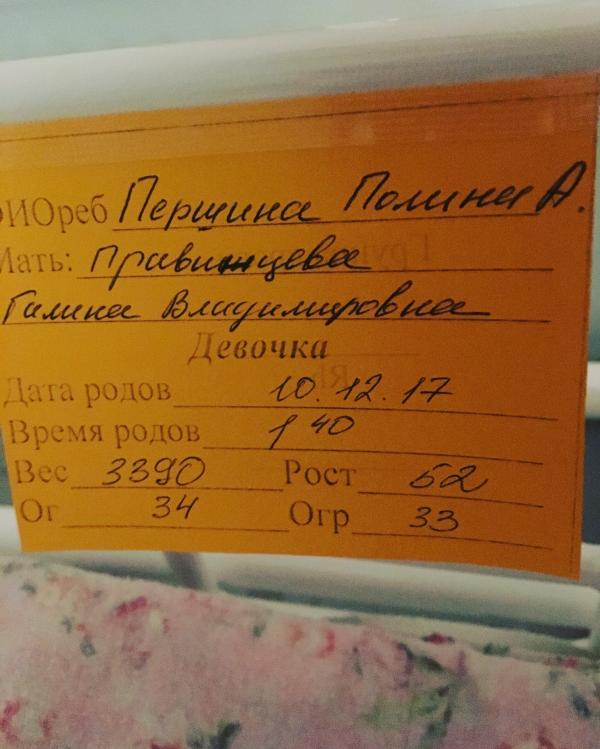 ФИОреб Першина Полина А.
Мать: Правинцева
Галина Владимировна
Девочка
Дата родов 10.12.17
Время родов 1 40
Вес 3390 Рост 52
Ог 34 Огр 33